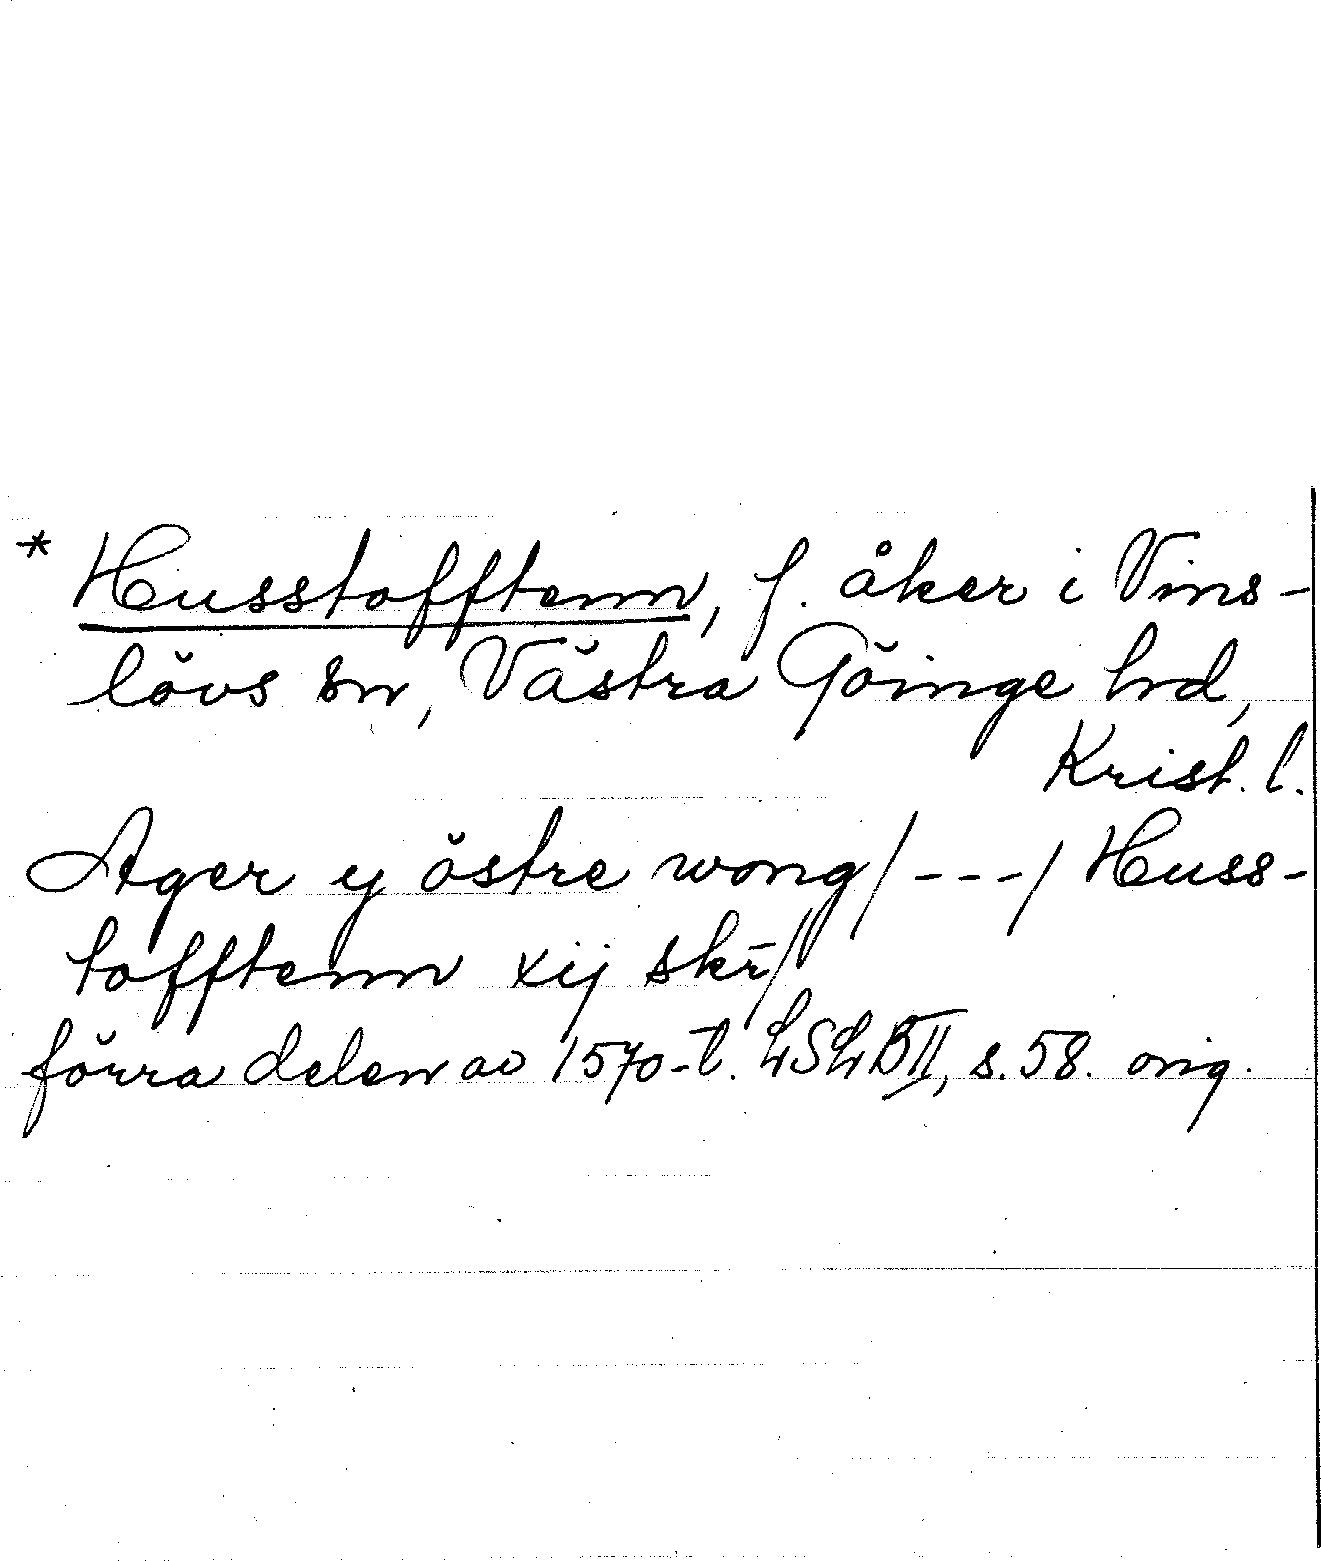 * Husstofftenn, f. åker i Vins-
lövs sn, Västra Göinge hd,
Krist. l.
Ager y östre wong /---/ Huss-
tofftenn xij skr̄/
förra delen av 1570-t. LSLB II, s. 58. orig.